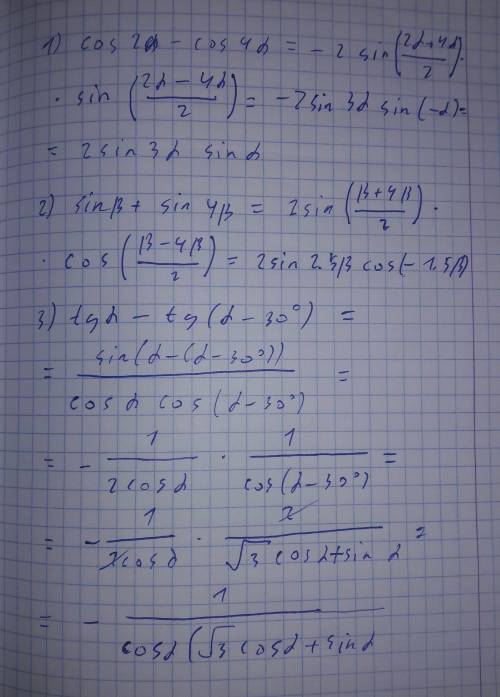 1) cos 2α - cos 4α = -2 sin(2α+4α/2)·
· sin (2α-4α/2) = -2sin 3α sin(-α)=
= 2sin 3α sin α
2) sin β + sin 4β = 2sin (β+4β/2)·
· cos (β-4β/2) = 2sin 2.5β cos(-1.5β)
3) tg α - tg (α-30°) =
= sin(α-(α-30°))/cos α cos (α-30°) =
= - 1/2cos α · 1/cos(α-30°) =
= - 1/2cos α · 2/√3 cos α+sin α =
= - 1/cos α (√3 cos α + sin α